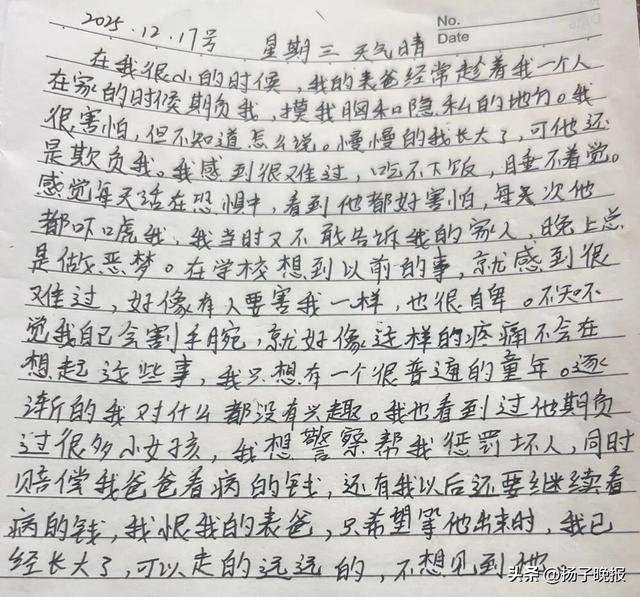 No.
Date
2025.12.17号 星期三 天气晴
在我很小的时候，我的表爸经常趁着我一个人
在家的时候期负我，摸我胸和隐私的地方。我
很害怕，但不知道怎么说。慢慢的我长大了，可他还
是欺负我。我感到很难过，吃不下饭，睡不着觉。
感觉每天活在恐惧中，看到他都好害怕，每次他
都吓唬我，我当时又不敢告诉我的家人，晚上总
是做恶梦。在学校想到以前的事，就感到很
难过，好像有人要害我一样，也很自卑。不知不
觉我自己会割手腕，就好像这样的疼痛不会在
想起这些事，我只想有一个很普通的童年。逐
渐的我对什么都没有兴趣。我也看到过他期负
过很多小女孩，我想警察帮我惩罚坏人，同时
赔偿我爸爸看病的钱，还有我以后还要继续看
病的钱，我恨我的表爸，只希望等他出来时，我已
经长大了，可以走的远远的，不想见到他
头条@扬子晚报